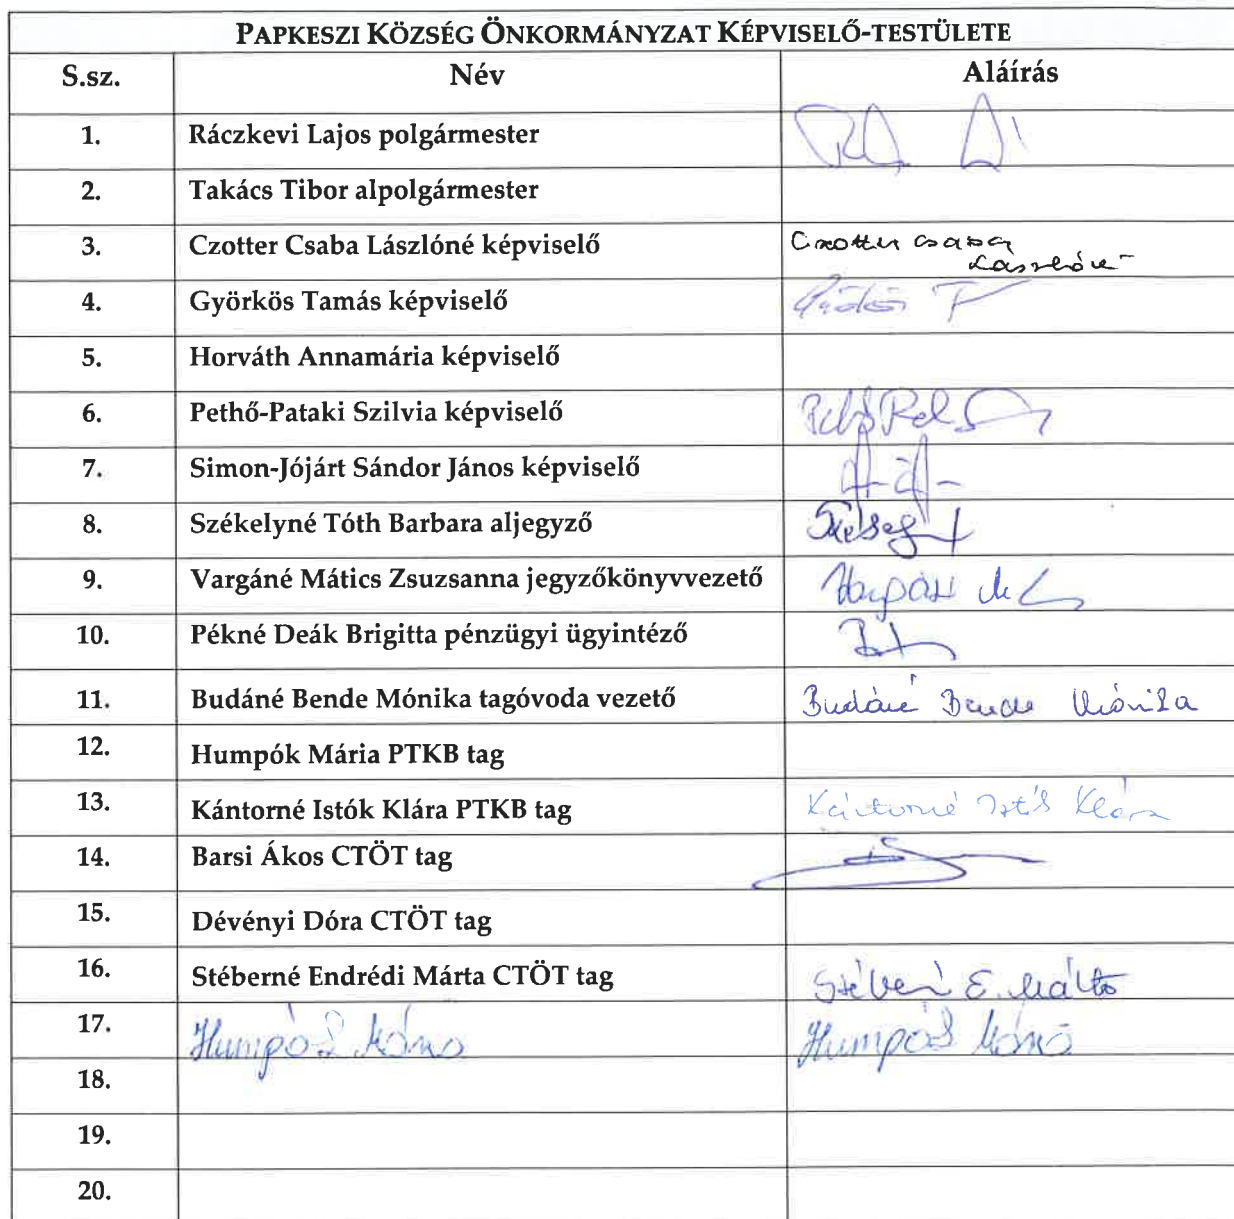 PAPKESZI KÖZSÉG ÖNKORMÁNYZAT KÉPVISELŐ-TESTÜLETE
S.sz. Név Aláírás
1. Ráczkevi Lajos polgármester
2. Takács Tibor alpolgármester
3. Czotter Csaba Lászlóné képviselő Czotter Csaba
Lászlóné
4. Györkös Tamás képviselő
5. Horváth Annamária képviselő
6. Pethő-Pataki Szilvia képviselő
7. Simon-Jójárt Sándor János képviselő
8. Székelyné Tóth Barbara aljegyző
9. Vargáné Mátics Zsuzsanna jegyzőkönyvvezető
10. Pékné Deák Brigitta pénzügyi ügyintéző
11. Budáné Bende Mónika tagóvoda vezető Budáné Bende Mónika
12. Humpók Mária PTKB tag
13. Kántorné Istók Klára PTKB tag Kántorné Istók Klára
14. Barsi Ákos CTÖT tag
15. Dévényi Dóra CTÖT tag
16. Stéberné Endrédi Márta CTÖT tag Stéberné E. Márta
17. Humpók Mária Humpók Mária
18.
19.
20.